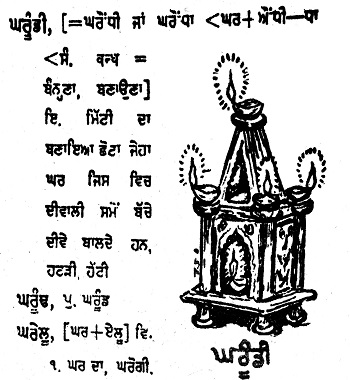 ਘਰੂੰਡੀ, [=ਘਰੌਂਧੀ ਜਾਂ ਘਰੌਂਧਾ <ਘਰ+ਔਂਧੀ—ਧਾ
<ਸੰ. ਬਨ੍ਧ =
ਬੰਨ੍ਹਣਾ, ਬਣਾਉਣਾ]
ਇ. ਮਿੱਟੀ ਦਾ
ਬਣਾਇਆ ਛੋਟਾ ਜੇਹਾ
ਘਰ ਜਿਸ ਵਿਚ
ਦੀਵਾਲੀ ਸਮੇਂ ਬੱਚੇ
ਦੀਵੇ ਬਾਲਦੇ ਹਨ,
ਹਟੜੀ, ਹੱਟੀ
ਘਰੂੰਢ, ਪੁ. ਘਰੂੰਡ
ਘਰੇਲੂ, [ਘਰ+ਏਲੂ] ਵਿ.
੧. ਘਰ ਦਾ, ਘਰੋਗੀ.
ਘਰੂੰਡੀ